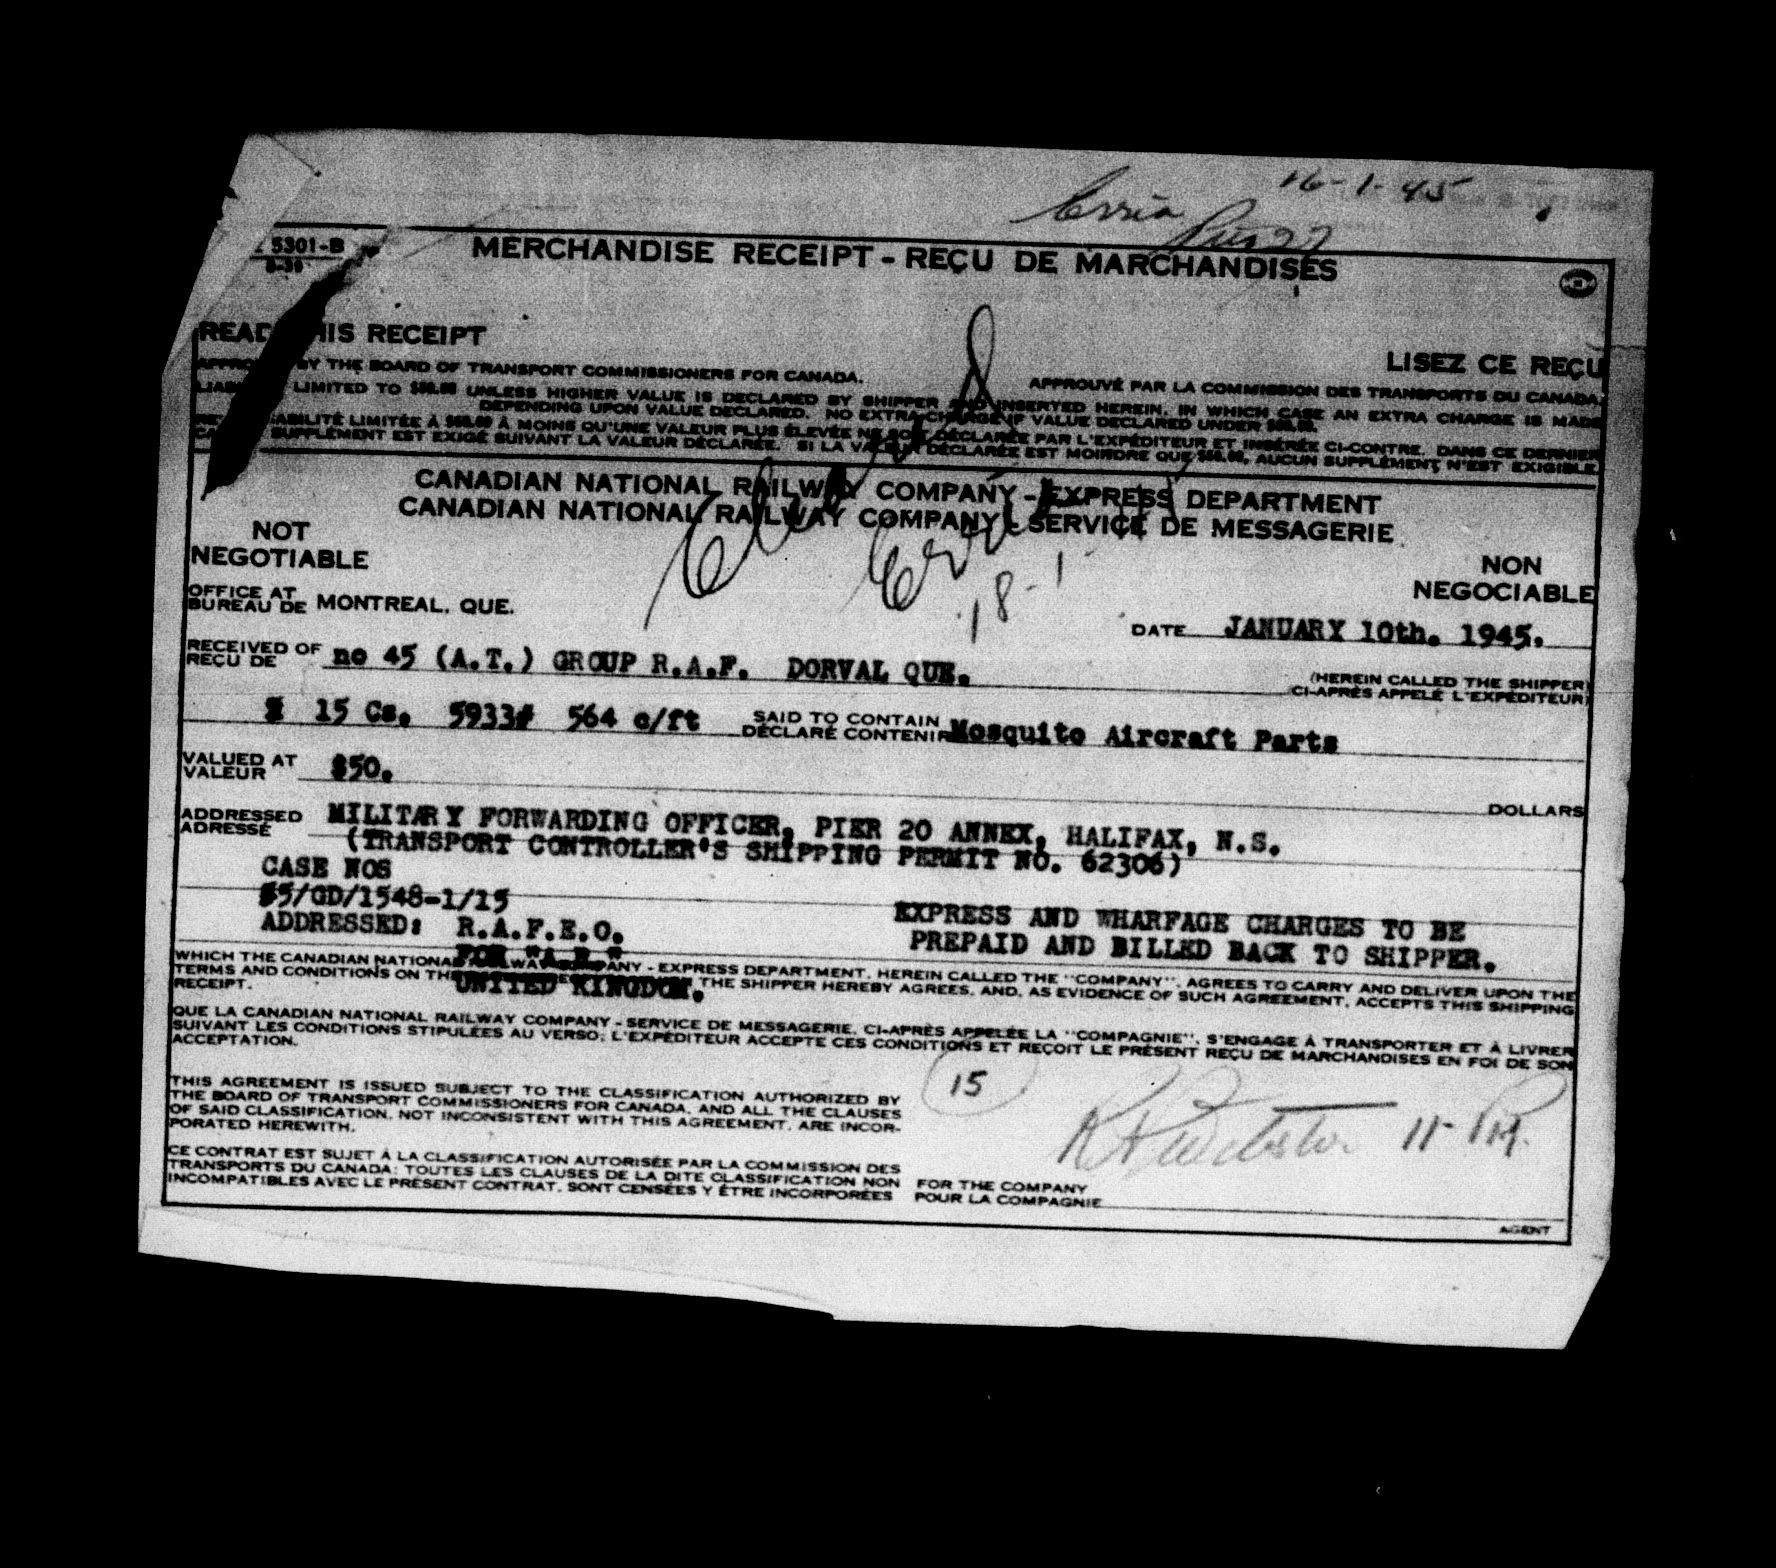 16-1-45
5301-B
MERCHANDISE RECEIPT - REÇU DE MARCHANDISES
READ THIS RECEIPT
LISEZ CE REÇU
BY THE BOARD OF TRANSPORT COMMISSIONERS FOR CANADA.
APPROUVÉ PAR LA COMMISSION DES TRANSPORTS DU CANADA.
LIMITED TO $50.00 UNLESS HIGHER VALUE IS DECLARED BY SHIPPER AND INSERTED HEREIN, IN WHICH CASE AN EXTRA CHARGE IS MADE
DEPENDING UPON VALUE DECLARED. NO EXTRA CHARGE IF VALUE DECLARED UNDER $50.00.
LIMITÉE À $50.00 À MOINS QU'UNE VALEUR PLUS ÉLEVÉE NE SOIT DÉCLARÉE PAR L'EXPÉDITEUR ET INSÉRÉE CI-CONTRE, DANS CE DERNIER
SUPPLÉMENT EST EXIGÉ SUIVANT LA VALEUR DÉCLARÉE. SI LA VALEUR DÉCLARÉE EST MOINDRE QUE $50.00, AUCUN SUPPLÉMENT N'EST EXIGIBLE.
CANADIAN NATIONAL RAILWAY COMPANY - EXPRESS DEPARTMENT
CANADIAN NATIONAL RAILWAY COMPANY - SERVICE DE MESSAGERIE
NOT
NEGOTIABLE
NON
NEGOCIABLE
18-1
OFFICE AT
BUREAU DE MONTREAL, QUE.
DATE JANUARY 10th. 1945.
RECEIVED OF
REÇU DE no 45 (A.T.) GROUP R.A.F. DORVAL QUE.
(HEREIN CALLED THE SHIPPER)
CI-APRÈS APPELÉ L'EXPÉDITEUR)
15 Cs. 5933# 564 c/ft SAID TO CONTAIN
DÉCLARÉ CONTENIR Mosquito Aircraft Parts
VALUED AT
VALEUR $50.
DOLLARS
ADDRESSED
ADRESSÉ MILITARY FORWARDING OFFICER, PIER 20 ANNEX, HALIFAX, N.S.
(TRANSPORT CONTROLLER'S SHIPPING PERMIT NO. 62306)
CASE NOS
45/GD/1548-1/15
ADDRESSED: R.A.F.E.O.
EXPRESS AND WHARFAGE CHARGES TO BE
PREPAID AND BILLED BACK TO SHIPPER.
FOR "A.E."
UNITED KINGDOM.
WHICH THE CANADIAN NATIONAL RAILWAY COMPANY - EXPRESS DEPARTMENT, HEREIN CALLED THE "COMPANY", AGREES TO CARRY AND DELIVER UPON THE
TERMS AND CONDITIONS ON THE THE SHIPPER HEREBY AGREES, AND, AS EVIDENCE OF SUCH AGREEMENT, ACCEPTS THIS SHIPPING
RECEIPT.
QUE LA CANADIAN NATIONAL RAILWAY COMPANY - SERVICE DE MESSAGERIE, CI-APRÈS APPELÉE LA "COMPAGNIE", S'ENGAGE À TRANSPORTER ET À LIVRER
SUIVANT LES CONDITIONS STIPULÉES AU VERSO; L'EXPÉDITEUR ACCEPTE CES CONDITIONS ET REÇOIT LE PRÉSENT REÇU DE MARCHANDISES EN FOI DE SON
ACCEPTATION.
THIS AGREEMENT IS ISSUED SUBJECT TO THE CLASSIFICATION AUTHORIZED BY
THE BOARD OF TRANSPORT COMMISSIONERS FOR CANADA, AND ALL THE CLAUSES
OF SAID CLASSIFICATION, NOT INCONSISTENT WITH THIS AGREEMENT, ARE INCOR-
PORATED HEREWITH.
15
Webster 11- PM.
CE CONTRAT EST SUJET À LA CLASSIFICATION AUTORISÉE PAR LA COMMISSION DES
TRANSPORTS DU CANADA; TOUTES LES CLAUSES DE LA DITE CLASSIFICATION NON
INCOMPATIBLES AVEC LE PRÉSENT CONTRAT, SONT CENSÉES Y ÊTRE INCORPORÉES
FOR THE COMPANY
POUR LA COMPAGNIE
AGENT